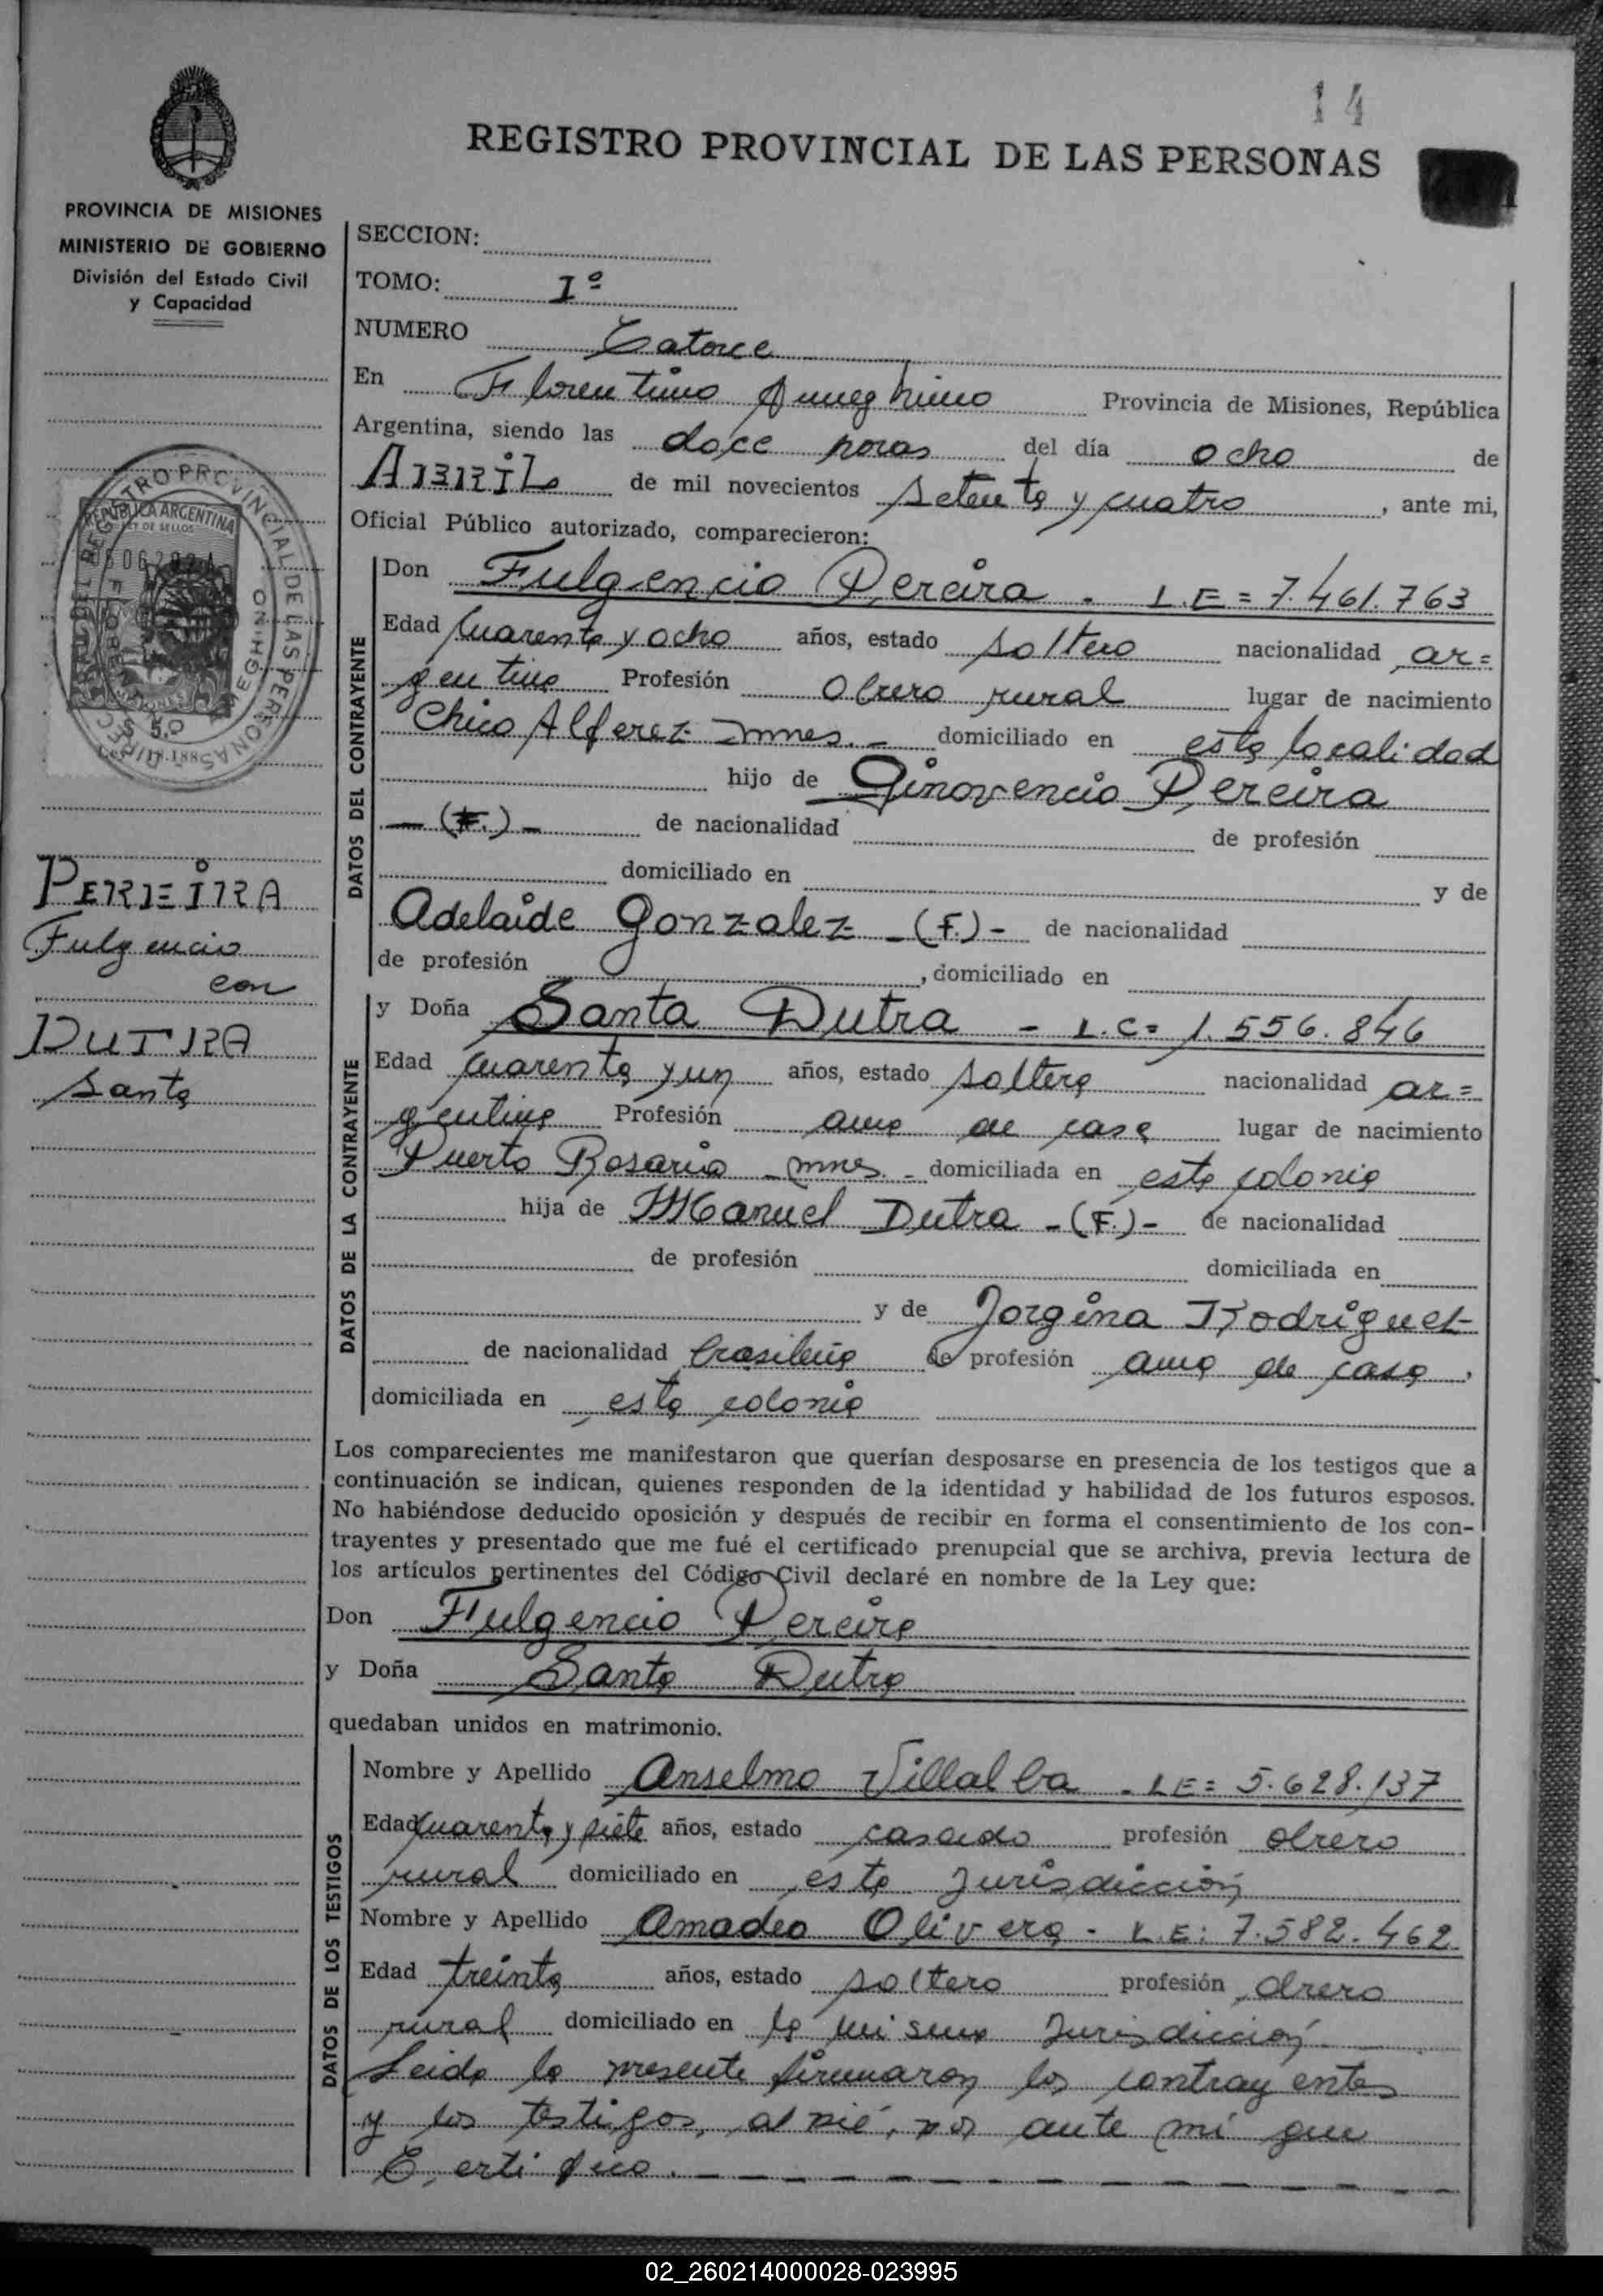 14
REGISTRO PROVINCIAL DE LAS PERSONAS
PROVINCIA DE MISIONES
MINISTERIO DE GOBIERNO
División del Estado Civil
y Capacidad
REGISTRO PROVINCIAL DE LAS PERSONAS
REPUBLICA ARGENTINA
LEY DE SELLOS
PEREIRA
Fulgencio
con
DUTRA
Santa
SECCION:
TOMO: Iº
NUMERO Catorce
En Florentino Ameghino Provincia de Misiones, República
Argentina, siendo las doce horas del día ocho de
ABRIL de mil novecientos setenta y cuatro, ante mi,
Oficial Público autorizado, comparecieron:
DATOS DEL CONTRAYENTE
Don Fulgencio Pereira - L.E = 7.461.763
Edad cuarenta y ocho años, estado soltero nacionalidad ar=
gentino Profesión obrero rural lugar de nacimiento
Chico Alferez - mnes. - domiciliado en esta localidad
hijo de Ginovencio Pereira
- (F.) - de nacionalidad de profesión
domiciliado en y de
Adelaide Gonzalez - (F.) - de nacionalidad
de profesión , domiciliado en
DATOS DE LA CONTRAYENTE
y Doña Santa Dutra - L.C= 1.556.846
Edad cuarenta y un años, estado soltera nacionalidad ar=
gentina Profesión ama de casa lugar de nacimiento
Puerto Rosario - mnes. - domiciliada en esta colonia
hija de Manuel Dutra - (F.) - de nacionalidad
de profesión domiciliada en
y de Jorgina Rodriguez
de nacionalidad brasileña de profesión ama de casa,
domiciliada en esta colonia
Los comparecientes me manifestaron que querían desposarse en presencia de los testigos que a
continuación se indican, quienes responden de la identidad y habilidad de los futuros esposos.
No habiéndose deducido oposición y después de recibir en forma el consentimiento de los con-
trayentes y presentado que me fué el certificado prenupcial que se archiva, previa lectura de
los artículos pertinentes del Código Civil declaré en nombre de la Ley que:
Don Fulgencio Pereira
y Doña Santa Dutra
quedaban unidos en matrimonio.
DATOS DE LOS TESTIGOS
Nombre y Apellido Anselmo Villalba - LE= 5.628.137
Edad cuarenta y siete años, estado casado profesión obrero
rural domiciliado en esta Jurisdicción
Nombre y Apellido Amadeo Olivera - L.E: 7.582.462
Edad treinta años, estado soltero profesión obrero
rural domiciliado en la misma Jurisdicción
Leida la presente firmaron los contrayentes
y los testigos, al pié, por ante mí que
Certifico.
02_260214000028-023995